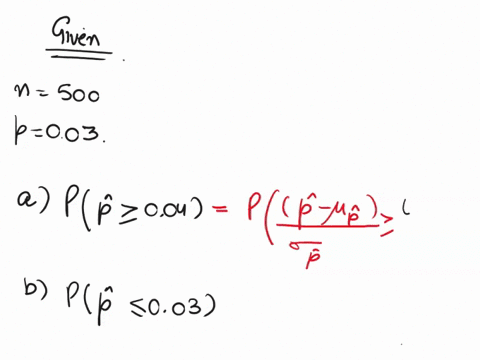 Given
n = 500
p = 0.03.
a) P(p̂ ≥ 0.04) = P((p̂ - μp̂)/σp̂ ≥ (
b) P(p̂ ≤ 0.03)